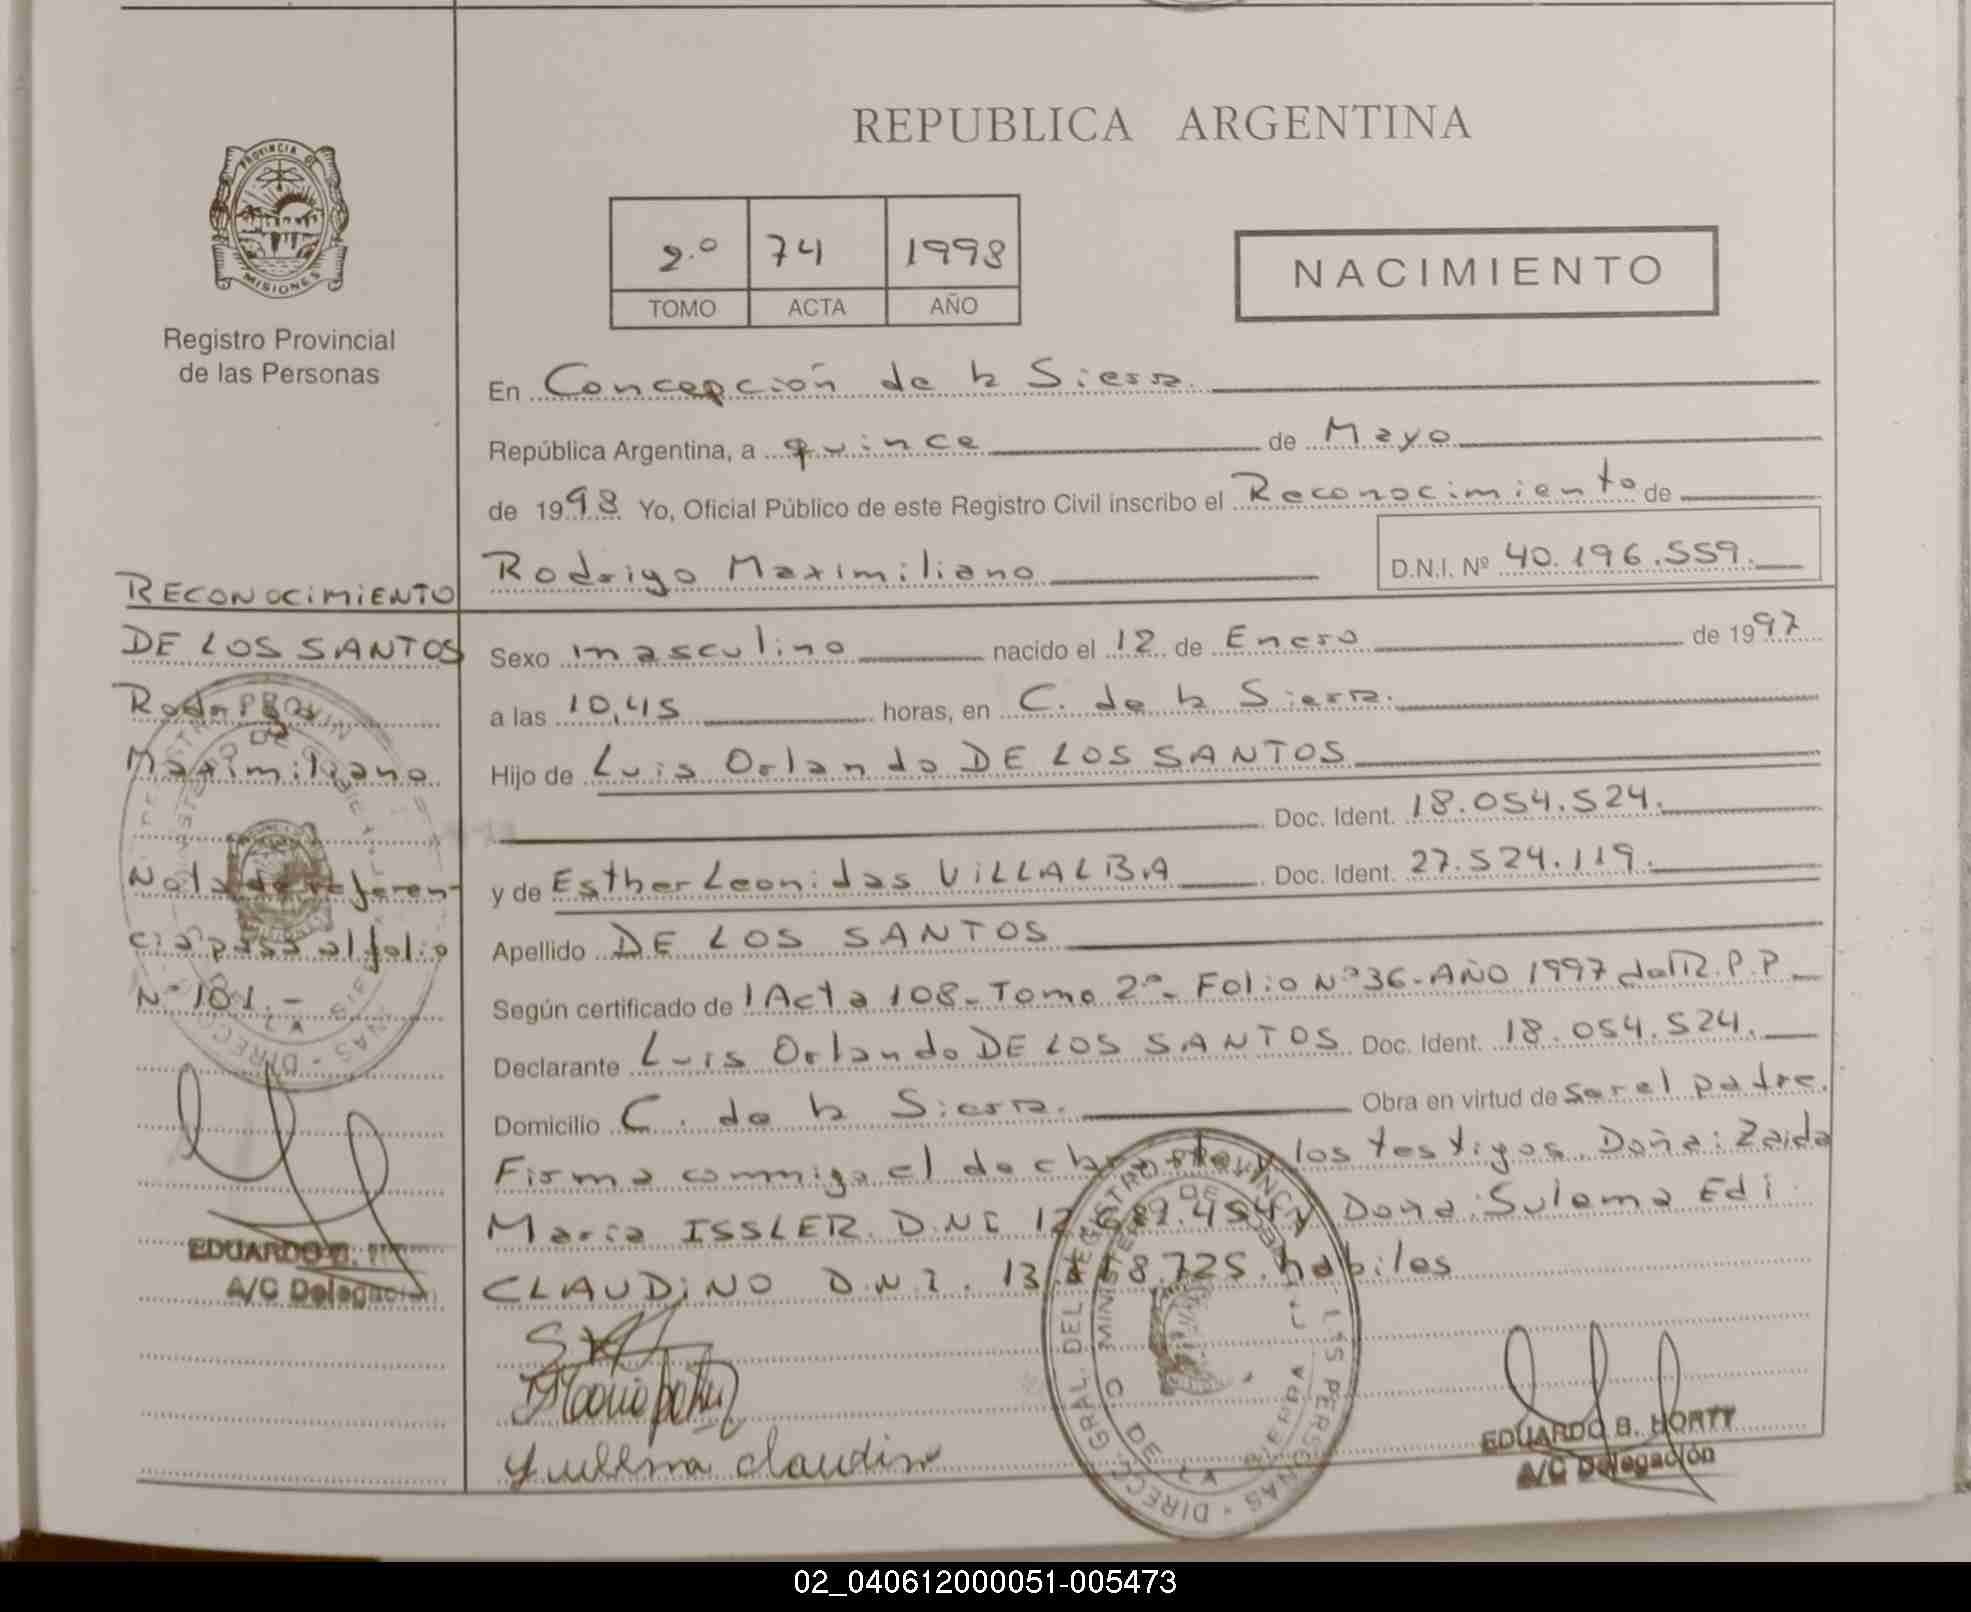 REPUBLICA ARGENTINA
PROVINCIA DE MISIONES
Registro Provincial
de las Personas
2.º 74 1998
TOMO ACTA AÑO
NACIMIENTO
En Concepción de la Sierra
República Argentina, a quince de Mayo
de 1998 Yo, Oficial Público de este Registro Civil inscribo el Reconocimiento de
Rodrigo Maximiliano D.N.I. Nº 40.196.559.
Sexo masculino nacido el 12 de Enero de 1997
a las 10,45 horas, en C. de la Sierra.
Hijo de Luis Orlando DE LOS SANTOS
Doc. Ident. 18.054.524.
y de Esther Leonidas VILLALBA Doc. Ident. 27.524.119.
Apellido DE LOS SANTOS
Según certificado de 1 Acta 108- Tomo 2º- Folio Nº 36- AÑO 1997 del R.P.P.
Declarante Luis Orlando DE LOS SANTOS Doc. Ident. 18.054.524.
Domicilio C. de la Sierra. Obra en virtud de ser el padre.
Firma conmigo el declarante y los testigos Doña: Zaida
Maria ISSLER D.N.I. y Doña: Sulema Edi
CLAUDINO D.N.I. habiles
Yullma Claudino
EDUARDO B. HORTT
A/C Delegación
RECONOCIMIENTO
DE LOS SANTOS
Rodrigo
Maximiliano
Nota de referen-
cia pasa al folio
Nº 181.-
EDUARDO B.
A/C Delegación
DIRECC. GRAL. DEL REGISTRO PROVINCIAL DE LAS PERSONAS
MINISTERIO DE GOBIERNO
C. DE LA SIERRA
02_040612000051-005473